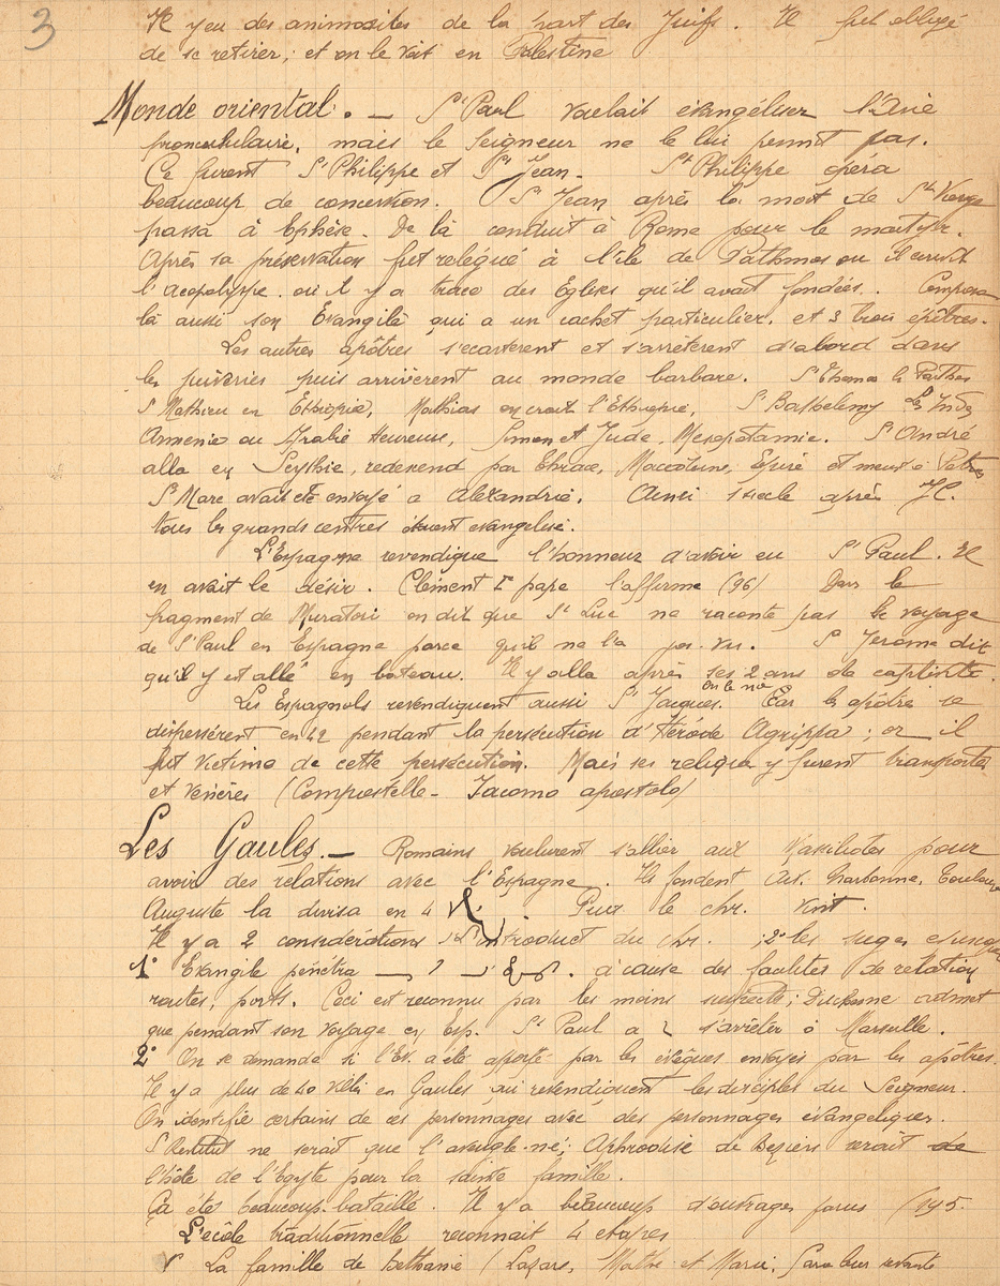 3
Il y eu des animosités de la part des Juifs. Il fut obligé
de se retirer, et on le voit en Palestine
Monde oriental. — St Paul voulait évangéliser l'Asie
proconsulaire, mais le Seigneur ne le lui permit pas.
Ce furent St Philippe et St Jean. St Philippe opéra
beaucoup de conversion. St Jean après la mort de Ste Vierge
passa à Ephèse. De là conduit à Rome pour le martyr.
Après sa préservation fut relégué à l'île de Pathmos ou il écrivit
l'acopolypse. où il y a trace des Eglises qu'il avait fondées. Composa
là aussi son Evangile qui a un cachet particulier. et 3 épîtres.
Les autres apôtres s'ecarterent et s'arrêterent d'abord dans
les juiveries puis arrivèrent au monde barbare. St Thomas les Parthes
St Mathieu en Ethiopie, Mathias on croit l'Ethiopie, St Barthelemy les Indes
Armenie ou Arabie Heureuse, Simon et Jude, Mesopotamie. St André
alla en Scythie, redescend par Thrace, Epire et meurt à Patras
St Marc avait été envoyé a Alexandrie. Ainsi siecle après JC.
tous les grands centres étaient evangelisé.
L'Espagne revendique l'honneur d'avoir eu St Paul. Il
en avait le désir. Clément Ie pape l'affirme (96) Dans le
fragment de Muratori on dit que St Luc ne raconte pas le voyage
de St Paul en Espagne parce qu'il ne l'a pas vu. St Jerome dit
qu'il y est allé en bateau. Il y alla après ses 2 ans de captivité.
Les Espagnols revendiquent aussi St Jacques. on le nie Car les apôtres se
dispersèrent en 42 pendant la persécution d'Hérode Agrippa ; or il
fut victime de cette persécution. Mais ses reliques y furent transportés
et vénérés (Compostelle - Jacomo apostolo)
Les Gaules. — Romains voulurent s'allier aux Massiliotes pour
avoir des relations avec l'Espagne. Ils fondent Aix. Narbonne, Toulouse
Auguste la divisa en 4 Puis le chr. vint.
Il y a 2 considérations introduct du chr. ; 2° les sieges
1° Evangile pénétra à cause des facilités de relation
routes, ports. Ceci est reconnu par les moins suspects ; Duchesne admet
que pendant son voyage en Esp. St Paul a s'arrêter à Marseille.
2° On se demande si l'Ev. a été apporté par les évêques envoyés par les apôtres.
Il y a plus de 40 villes en Gaules qui revendiquent les disciples du Seigneur.
On identifie certains de ces personnages avec des personnages évangeliques.
St Restitut ne serait que l'aveugle-né ; Aphrodise de Beziers serait de
l'hôte de l'Egypte pour la sainte famille.
Ça été beaucoup bataillé. Il y a beaucoup d'ouvrages parus
L'école traditionnelle reconnait 4 etapes
La famille de Bethanie (Lazare, Marthe et Marie, Sara leur servante